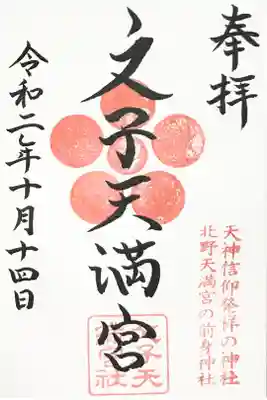 奉拝
天神信仰発祥の神社
北野天満宮の前身神社
文子天満宮
令和二年十月十四日